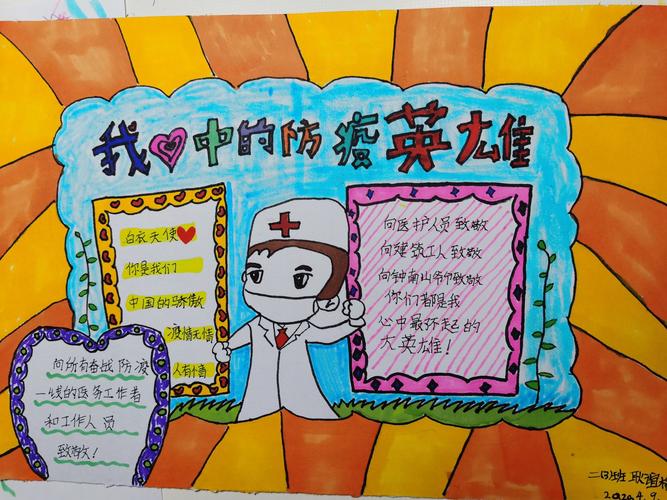 我❤中的防疫英雄
白衣天使❤
你是我们
中国的骄傲
疫情无情
人有情
向医护人员致敬
向建筑工人致敬
向钟南山爷爷致敬
你们都是我
心中最了不起的
大英雄!
向所有奋战防疫
一线的医务工作者
和工作人员
致敬!
二(3)班 耿
2020.4.